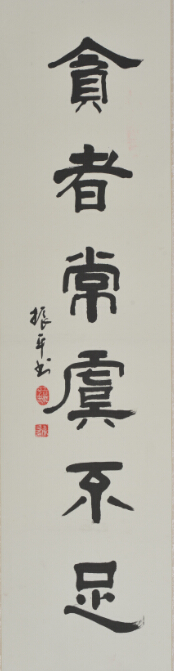 貪者常虞不足
振平书